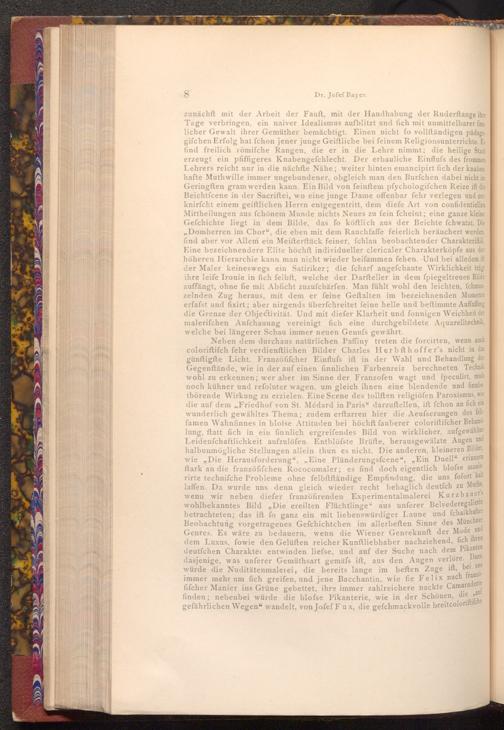 8 Dr. Josef Bayer.
zunächst mit der Arbeit der Faust, mit der Handhabung der Ruderstange ihre
Tage verbringen, ein naiver Idealismus aufblitzt und sich mit unmittelbarer
licher Gewalt ihrer Gemüther bemächtigt. Einen nicht so vollständigen
gischen Erfolg hat schon jener junge Geistliche bei seinem Religionsunterrichte. Es
sind freilich römische Rangen, die er in die Lehre nimmt; die heilige Stadt
erzeugt ein pfiffigeres Knabengeschlecht. Der erbauliche Einfluss des frommen
Lehrers reicht nur in die nächste Nähe; weiter hinten emancipirt sich der knaben-
hafte Muthwille immer ungebundener, obgleich man den Burschen dabei nicht im
Geringsten gram werden kann. Ein Bild von feinstem psychologischen Reize ist die
Beichtscene in der Sacristei, wo eine junge Dame offenbar sehr verlegen und zer-
knirscht einem geistlichen Herrn entgegentritt, dem diese Art von confidentiellen
Mittheilungen aus schönem Munde nichts Neues zu sein scheint; eine ganze kleine
Geschichte liegt in dem Bilde, das so köstlich aus der Beichte schwatzt. Die
„Domherren im Chor“, die eben mit dem Rauchfasse feierlich beräuchert werden,
sind aber vor Allem ein Meisterstück feiner, schlau beobachtender Charakteristik.
Eine bezeichnendere Elite höchst individueller clericaler Charakterköpfe aus der
höheren Hierarchie kann man nicht wieder beisammen sehen. Und bei alledem ist
der Maler keineswegs ein Satiriker; die scharf angeschaute Wirklichkeit trägt
ihre leise Ironie in sich selbst, welche der Darsteller in dem spiegeltreuen Bilde
auffängt, ohne sie mit Absicht zuzuschärfen. Man fühlt wohl den leichten, schmun-
zelnden Zug heraus, mit dem er seine Gestalten im bezeichnenden Moment
erfasst und fixirt; aber nirgends überschreitet seine helle und bestimmte Auffassung
die Grenze der Objectivität. Und mit dieser Klarheit und sonnigen Weichheit der
malerischen Anschauung vereinigt sich eine durchgebildete Aquarelltechnik,
welche bei längerer Schau immer neuen Genuss gewährt.
Neben dem durchaus natürlichen Passiny treten die forcirten, wenn auch
coloristisch sehr verdienstlichen Bilder Charles Herbsthoffer's nicht in das
günstigste Licht. Französischer Einfluss ist in der Wahl und Behandlung der
Gegenstände, wie in der auf einen sinnlichen Farbenreiz berechneten Technik
wohl zu erkennen; wer aber im Sinne der Franzosen wagt und speculirt, muss
noch kühner und resoluter wagen, um gleich ihnen eine blendende und sinnbe-
thörende Wirkung zu erzielen. Eine Scene des tollsten religiösen Paroxismus, wie
die auf dem „Friedhof von St. Médard in Paris“ darzustellen, ist schon an sich ein
wunderlich gewähltes Thema; zudem erstarren hier die Aeusserungen des selt-
samen Wahnsinnes in blosse Attituden bei höchst sauberer coloristischer Behand-
lung, statt sich in ein sinnlich ergreifendes Bild von wirklicher, aufgewühlter
Leidenschaftlichkeit aufzulösen. Entblösste Brüste, herausgewälzte Augen und
halbunmögliche Stellungen allein thun es nicht. Die anderen, kleineren Bilder,
wie „Die Herausforderung“, „Eine Plünderungsscene“, „Ein Duell“ erinnern
stark an die französischen Rococomaler; es sind doch eigentlich blosse
rirte technische Probleme ohne selbstständige Empfindung, die uns sofort kalt
lassen. Da wurde uns denn gleich wieder recht behaglich deutsch zu Muthe,
wenn wir neben dieser französirenden Experimentalmalerei Kurzbauer's
wohlbekanntes Bild „Die ereilten Flüchtlinge“ aus unserer Belvederegallerie
betrachteten; das ist so ganz ein mit liebenswürdiger Laune und schalkhafter
Beobachtung vorgetragenes Geschichtchen im allerbesten Sinne des Münchner
Genres. Es wäre zu bedauern, wenn die Wiener Genrekunst der Mode und
dem Luxus, sowie den Gelüsten reicher Kunstliebhaber nachziehend, sich ihrem
deutschen Charakter entwinden liesse, und auf der Suche nach dem Pikanten
dasjenige, was unserer Gemüthsart gemäss ist, aus den Augen verlöre. Dann
würde die Nuditätenmalerei, die bereits lange im besten Zuge ist, bei uns
immer mehr um sich greifen, und jene Bacchantin, wie sie Felix nach franzö-
sischer Manier ins Grüne gebettet, ihre immer zahlreichere nackte Camaraderie
finden; nebenbei würde die blosse Pikanterie, wie in der Schönen, die „auf
gefährlichen Wegen“ wandelt, von Josef Fux, die geschmackvolle breitcoloristische